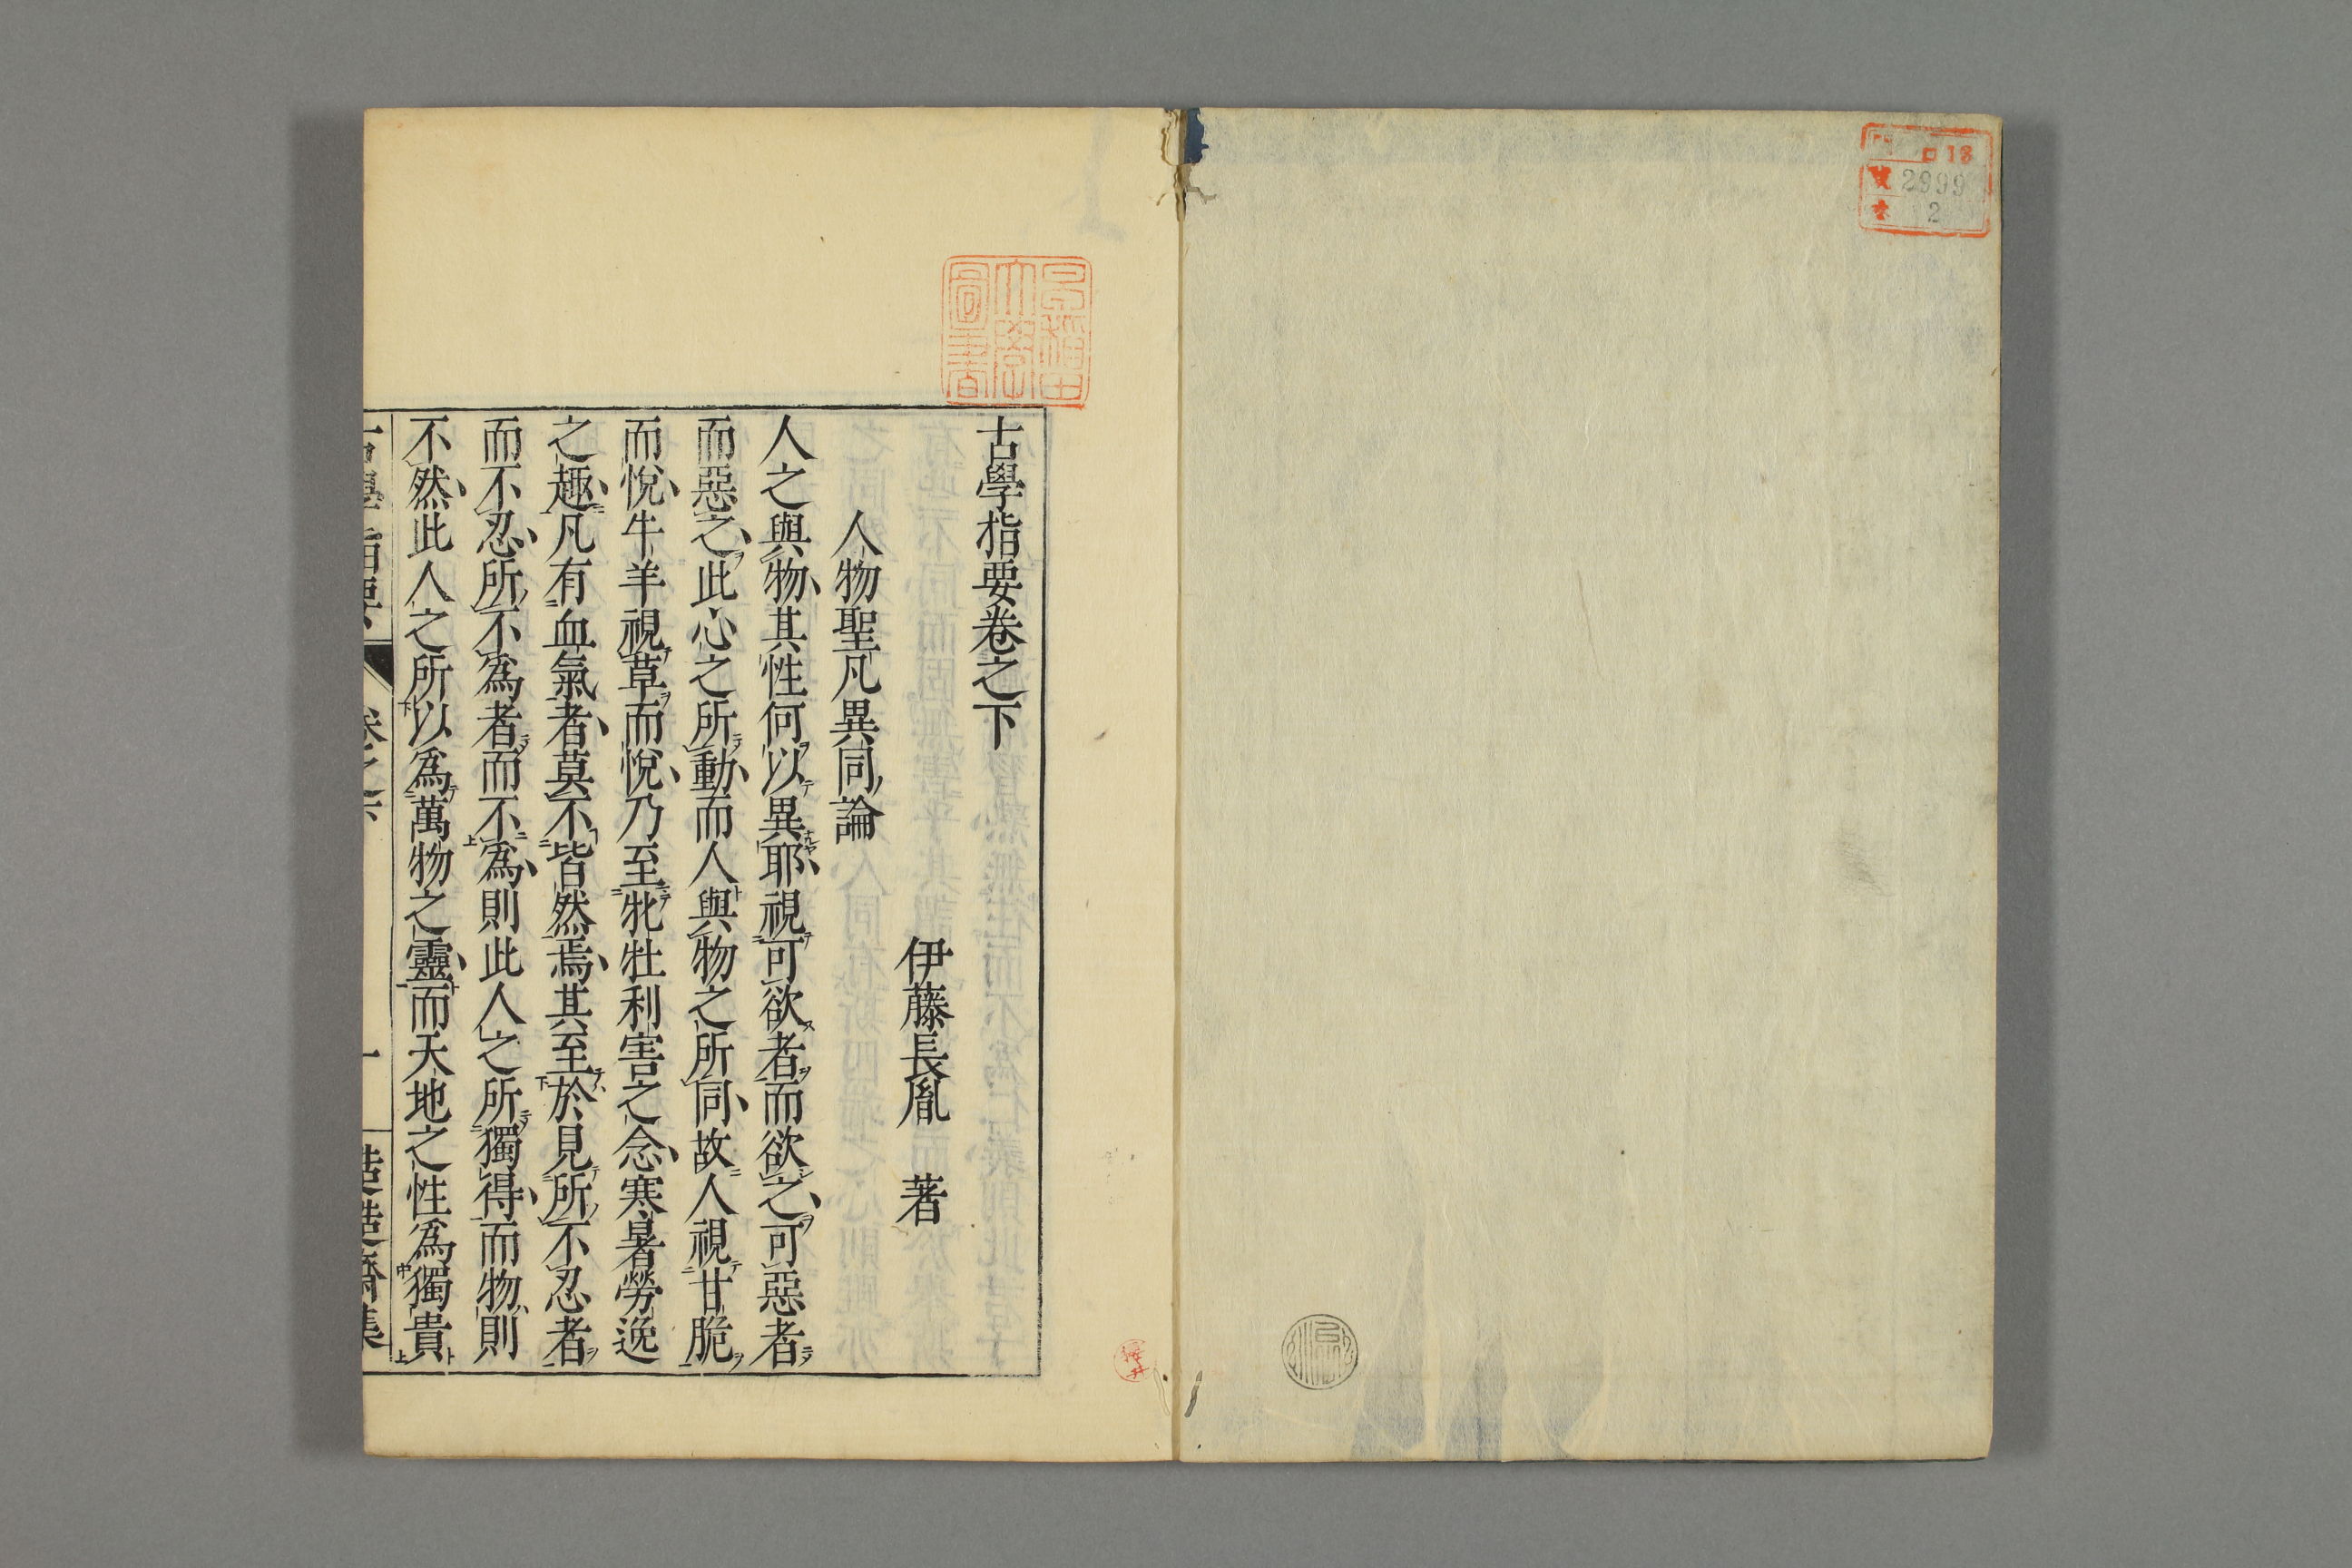 ロ13
2999
2
早稲田
大學
圖書
古學指要卷之下
伊藤長胤 著
人物聖凡異同論
人之與物其性何以異耶視可欲者而欲之可惡者
而惡之此心之所動而人與物之所同故人視甘脆
而悅牛羊視草而悅乃至牝牡利害之念寒暑勞逸
之趣凡有血氣者莫不皆然焉其至於見所不忍者
而不忍所不為者而不為則此人之所獨得而物則
不然此人之所以為萬物之靈而天地之性為獨貴
古學指要 卷之下 一